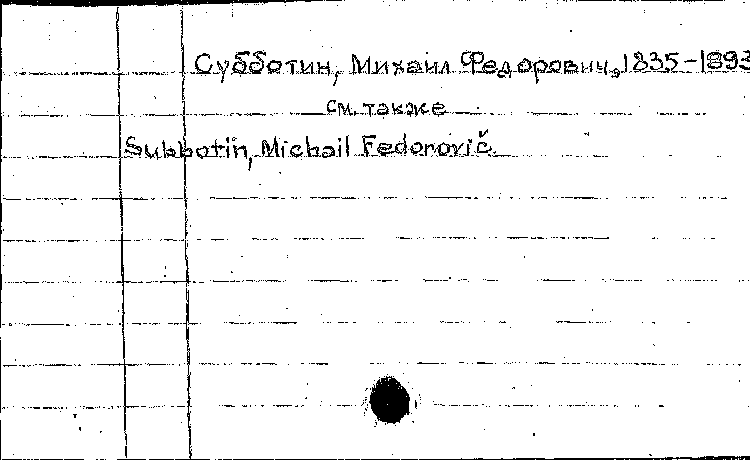 Субботин, Михаил Федорович, 1835-1893
см. также
Subbotin, Michail Fedorovič